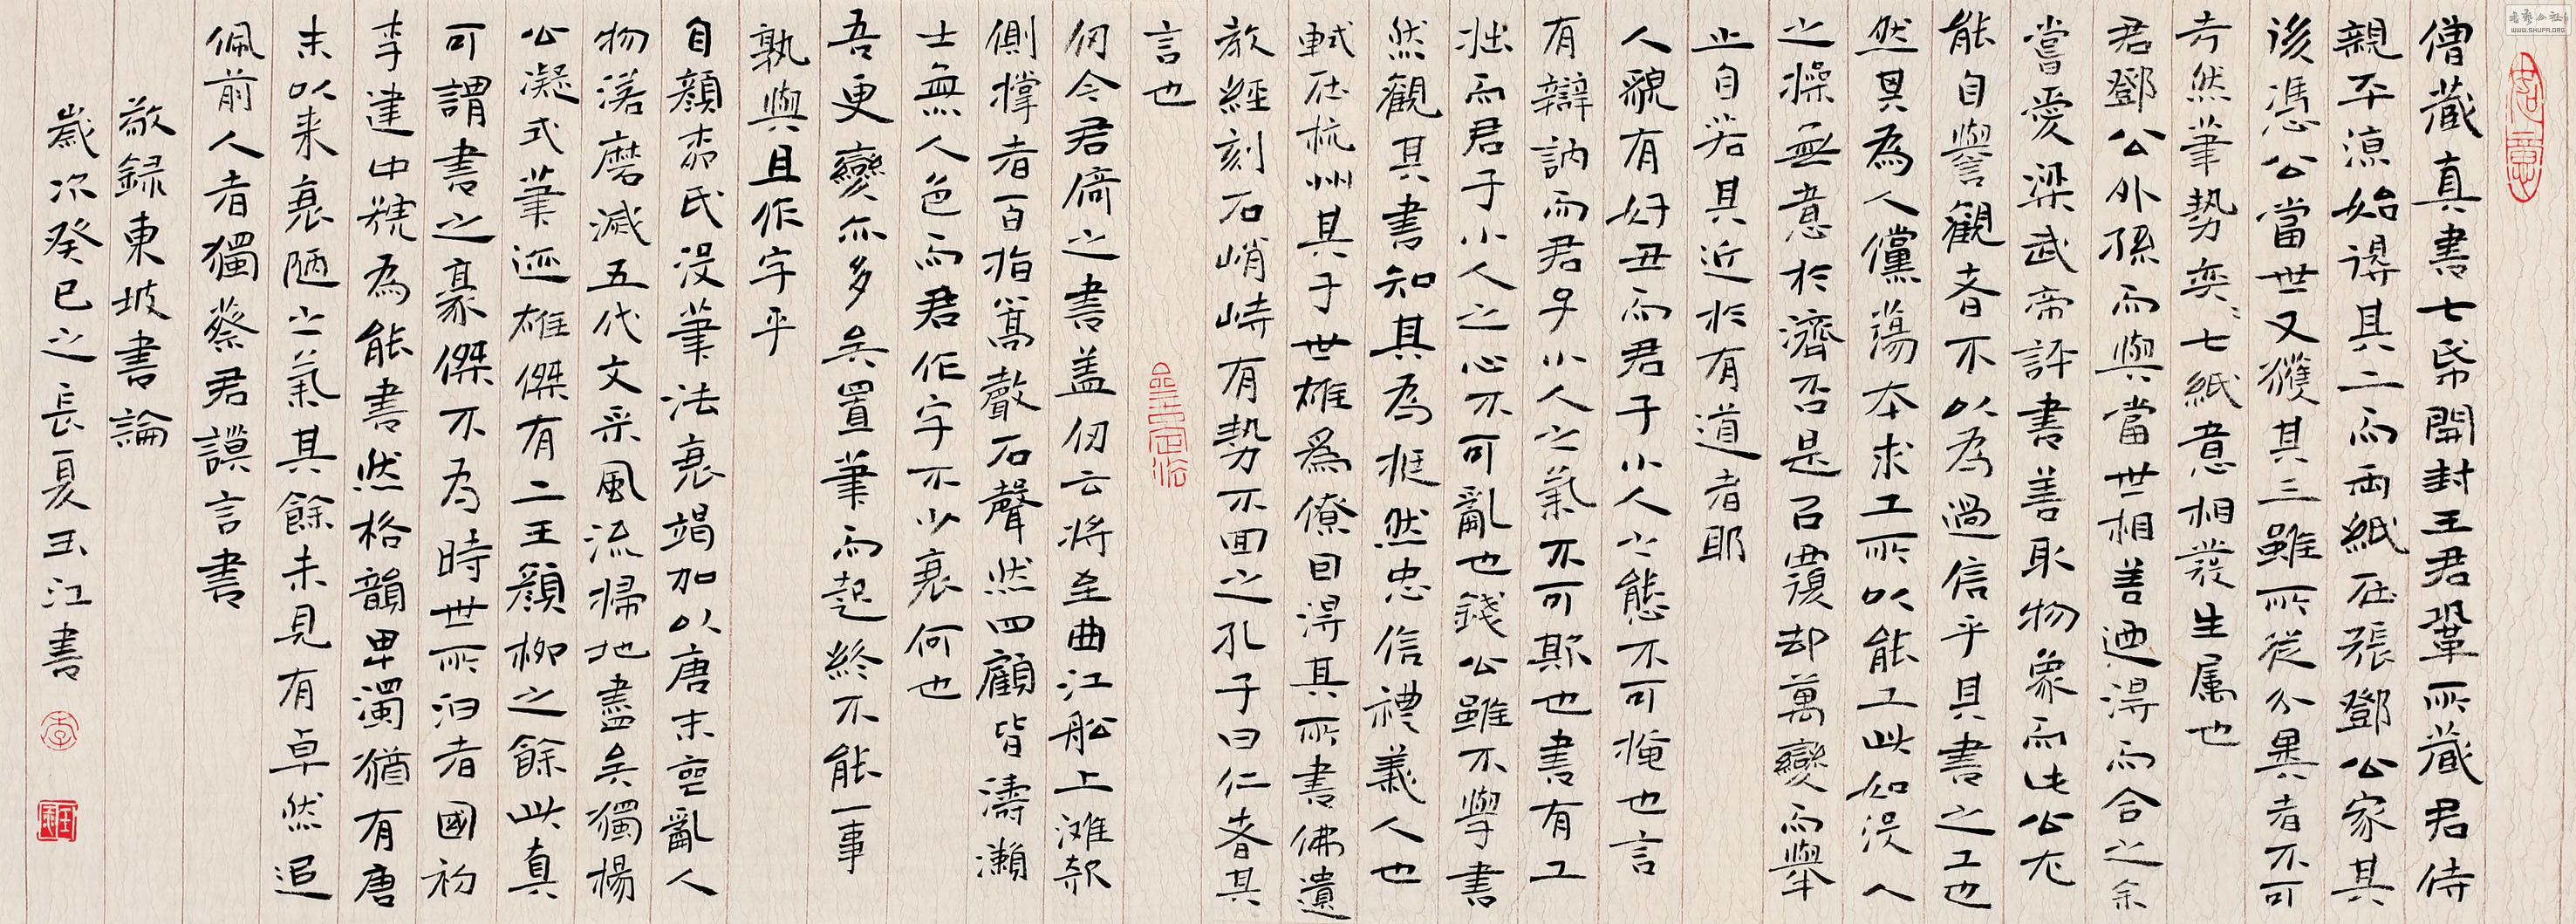 僧藏真書七帋開封王君鞏所藏君侍
親平涼始得其二而兩紙在張鄧公家其
後馮公當世又獲其三雖所從分異者不可
考然筆勢奕奕七紙意相發生属也
君鄧公外孫而與當世相善迺得而合之余
嘗愛梁武帝評書善取物象而此公尤
能自譽觀者不以為過信乎其書之工也
然其為人儻蕩本求工所以能工此如没人
之操無意於濟否是召覆却萬變而舉
止自若其近於有道者耶
人貌有好丑而君子小人之態不可掩也言
有辯訥而君子小人之氣不可欺也書有工
拙而君子小人之心不可亂也錢公雖不學書
然觀其書知其為挺然忠信禮義人也
軾在杭州其子世雄為僚因得其所書佛遺
教經刻石峭峙有勢不回之孔子曰仁者其
言也
仞今君倚之書盖仞云将至曲江船上滩欹
側撑者百指篙聲石聲然四顧皆濤瀨
士無人色而君作字不少衰何也
吾更變亦多矣置筆而起終不能一事
孰與且作字乎
自顏柳氏没筆法衰竭加以唐末喪亂人
物落磨滅五代文采風流掃地盡矣獨楊
公凝式筆迹雄傑有二王顏柳之餘此真
可謂書之豪傑不為時世所汩者國初
李建中號為能書然格韻卑濁猶有唐
末以来衰陋之氣其餘未見有卓然追
佩前人者獨蔡君謨言書
敬録東坡書論
歲次癸巳之長夏玉江書
书艺公社
WWW.SHUFA.ORG